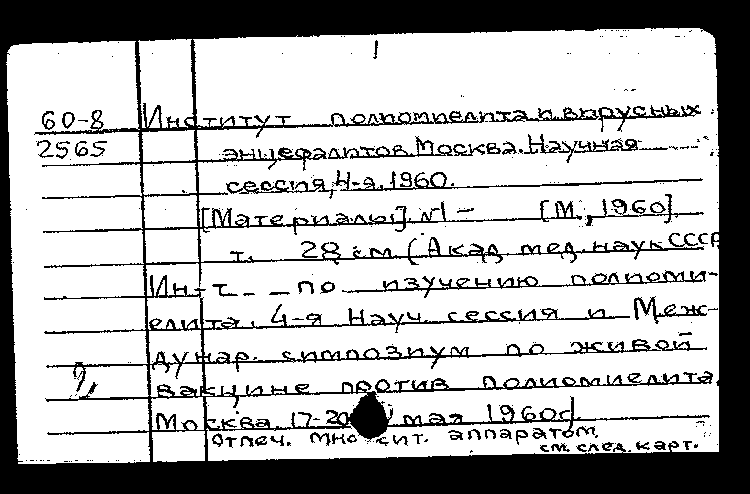 60-8 Институт полиомиелита и вирусных
2565 энцефалитов. Москва. Научная
сессия, 4-я. 1960.
[Материалы]. №1 - [М., 1960].
т. 28 см. (Акад. мед. наук СССР
Ин-т по изучению полиоми-
елита. 4-я Науч. сессия и Меж-
дунар. симпозиум по живой
2 вакцине против полиомиелита.
Москва. 17-20 мая 1960г.
Отпеч. множит. аппаратом.
см. след. карт.